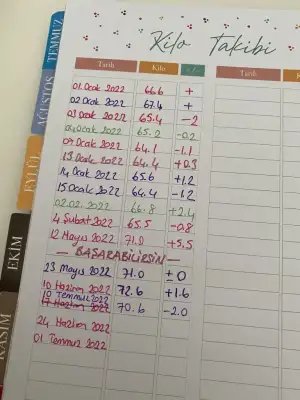 Kilo Takibi
Tarih Kilo +/- Tarih K
01 Ocak 2022 66.6 +
02 Ocak 2022 67.4 +
03 Ocak 2022 65.4 -2
04 Ocak 2022 65.2 -0.2
09 Ocak 2022 64.1 -1.1
13 Ocak 2022 64.4 +0.3
14 Ocak 2022 65.6 +1.2
15 Ocak 2022 64.4 -1.2
02.02.2022 66.8 +2.4
4 Şubat 2022 65.5 -0.8
12 Mayıs 2022 71.0 +5.5
— BAŞARABİLİRSİN —
23 Mayıs 2022 71.0 ± 0
10 Haziran 2022 72.6 +1.6
10 Temmuz 2022 70.6 -2.0
17 Haziran 2022
24 Haziran 2022
01 Temmuz 2022
TEMMUZ
AĞUSTOS
EYLÜL
EKİM
KASIM